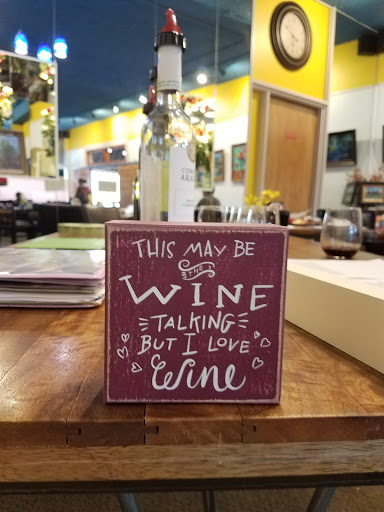 THIS MAY BE
THE
WINE
TALKING
BUT I LOVE
Wine